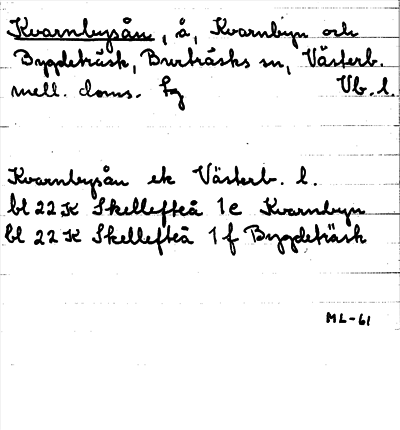 Kvarnbysån, å, Kvarnbyn och
Bygdeträsk, Burträsks sn, Västerb.
mell. doms. hg Vb. l.
Kvarnbysån ek Västerb. l.
bl 22 K Skellefteå 1e Kvarnbyn
bl 22 K Skellefteå 1f Bygdeträsk
ML-61